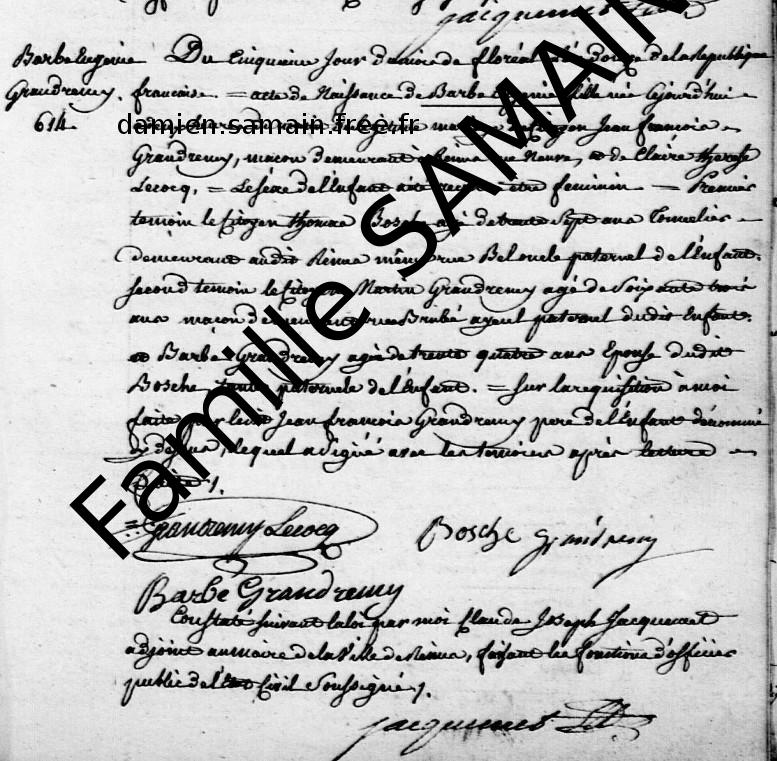 Jacquemet
Barbe Eugenie
Grandremy.
614
Du Cinquieme Jour du mois de floréal Douze de la Republique
francaise. = acte de Naissance de Barbe Eugenie fille née Ejourd'hui
damien.samain.free.fr
Jean francois
Grandremy, maçon demeurant à Reims rue Neuve, et de Claire therese
Lecocq, = Le sexe de l'Enfant a été reconnu être feminin = Premier
temoin le Citoyen thomas Bosche agé de trente Sept ans Tonnelier
demeurant audit Reims même rue Bel oncle paternel de l'Enfant.
second temoin le Citoyen Martin Grandremy agé de Soixante trois
ans maçon demeurant rue Brulé ayeul paternel dudit Enfant.
et Barbe Grandremy agée de trente quatre ans Epouse dudit
Bosche tante paternele de l'Enfant. = Sur la requisition à moi
faite par ledit Jean francois Grandremy pere de l'Enfant dénommé
cy dessus, lequel a signé avec les temoins après lecture
faite /.
Famille SAMAIN
Grandremy Lecocq Bosche grandremy
Barbe Grandremy
Constaté suivant la loi par moi Claude Joseph Jacquemet
adjoint au maire de la Ville de Reims, faisant les fonctions d'officier
public de l'état Civil Soussigné /.
Jacquemet